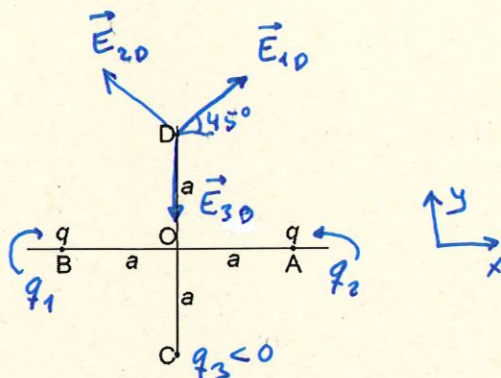 E⃗2D E⃗1D
D 45°
a E⃗3D
q O q y
B a a A x
q1 q2
a
C q3 < 0